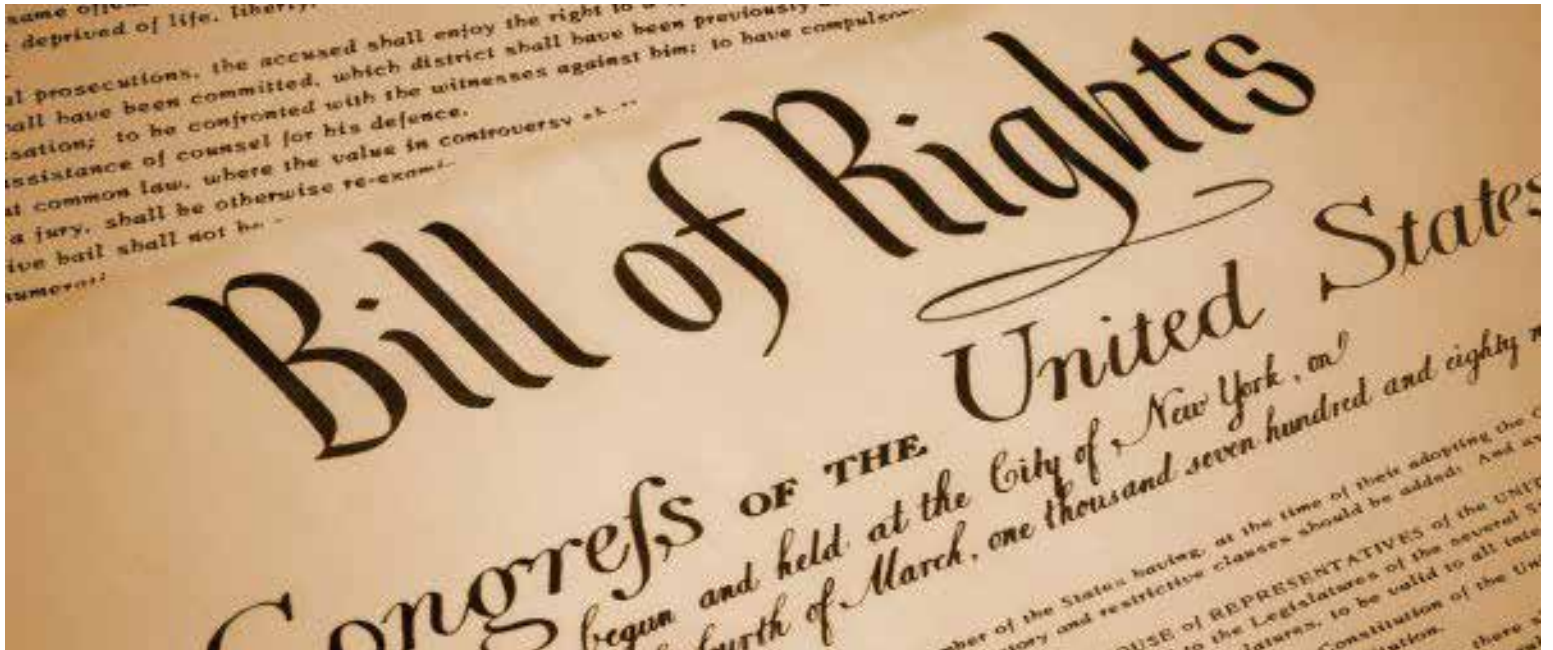 same
deprived of life, liberty,
prosecutions, the accused shall enjoy the right to a
have been committed, which district shall have been previously
to be confronted with the witnesses against him; to have
assistance of counsel for his defence.
common law, where the value in controversy
a jury, shall be otherwise
bail shall not
Bill of Rights
Congreſs OF THE United States
begun and held at the City of New York, on
of March, one thousand seven hundred and eighty
of the States having, at the time of their adopting the
and restrictive clauses should be added: And
of REPRESENTATIVES of the
to the Legislatures of the several
to be valid to all
Constitution of the
there